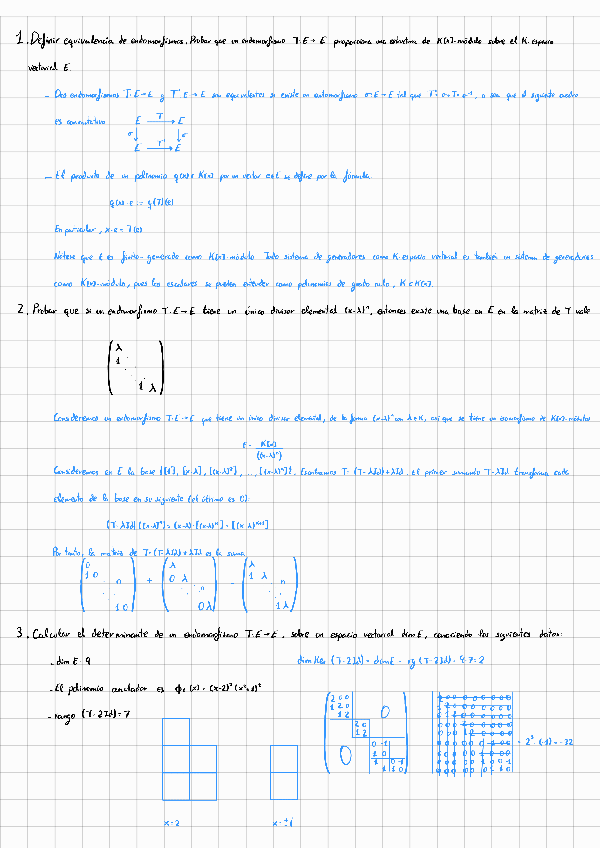 1. Definir equivalencia de endomorfismos. Probar que un endomorfismo T: E → E proporciona una estructura de K[x]-módulo sobre el K-espacio
vectorial E.
- Dos endomorfismos T: E → E y T': E → E son equivalentes si existe un automorfismo σ: E → E tal que T' = σ∘T∘σ⁻¹, o sea, que el siguiente cuadro
es conmutativo
E →T E
σ↓ ↓σ
E →T' E
- El producto de un polinomio q(x) ∈ K[x] por un vector e ∈ E se define por la fórmula
q(x)·e := q(T)(e)
En particular, x·e = T(e)
Nótese que E es finito-generado como K[x]-módulo. Todo sistema de generadores como K-espacio vectorial es también un sistema de generadores
como K[x]-módulo, pues los escalares se pueden entender como polinomios de grado nulo, K ⊂ K[x].
2. Probar que si un endomorfismo T: E → E tiene un único divisor elemental (x-λ)ⁿ, entonces existe una base en E en la matriz de T vale
λ
1
1 λ
Consideremos un endomorfismo T: E → E que tiene un único divisor elemental, de la forma (x-λ)ⁿ con λ ∈ K, así que se tiene un isomorfismo de K[x]-módulos
E = K[x] / ((x-λ)ⁿ)
Consideremos en E la base {[1], [x-λ], [(x-λ)²], ..., [(x-λ)ⁿ]}. Escribamos T = (T-λId)+λId. El primer sumando T-λId transforma cada
elemento de la base en su siguiente (el último es 0):
(T-λId)([(x-λ)ᵏ]) = (x-λ)·[(x-λ)ᵏ] = [(x-λ)ᵏ⁺¹]
Por tanto, la matriz de T = (T-λId)+λId es la suma
0 λ λ
1 0 + 0 λ = 1 λ
1 0 0 λ 1 λ
3. Calcular el determinante de un endomorfismo T: E → E, sobre un espacio vectorial dim E, conociendo los siguientes datos:
- dim E = 9 dim Ker (T-2Id) = dim E - rg (T-2Id) = 9-7 = 2
- El polinomio anulador es Φ(x) = (x-2)³(x²+1)²
- rango (T-2Id) = 7
2 0 0
1 2 0
1 2
2 0
1 2
0 -1
1 0
0
0
= 2⁵·(-1) = -32
x=2 x=±i